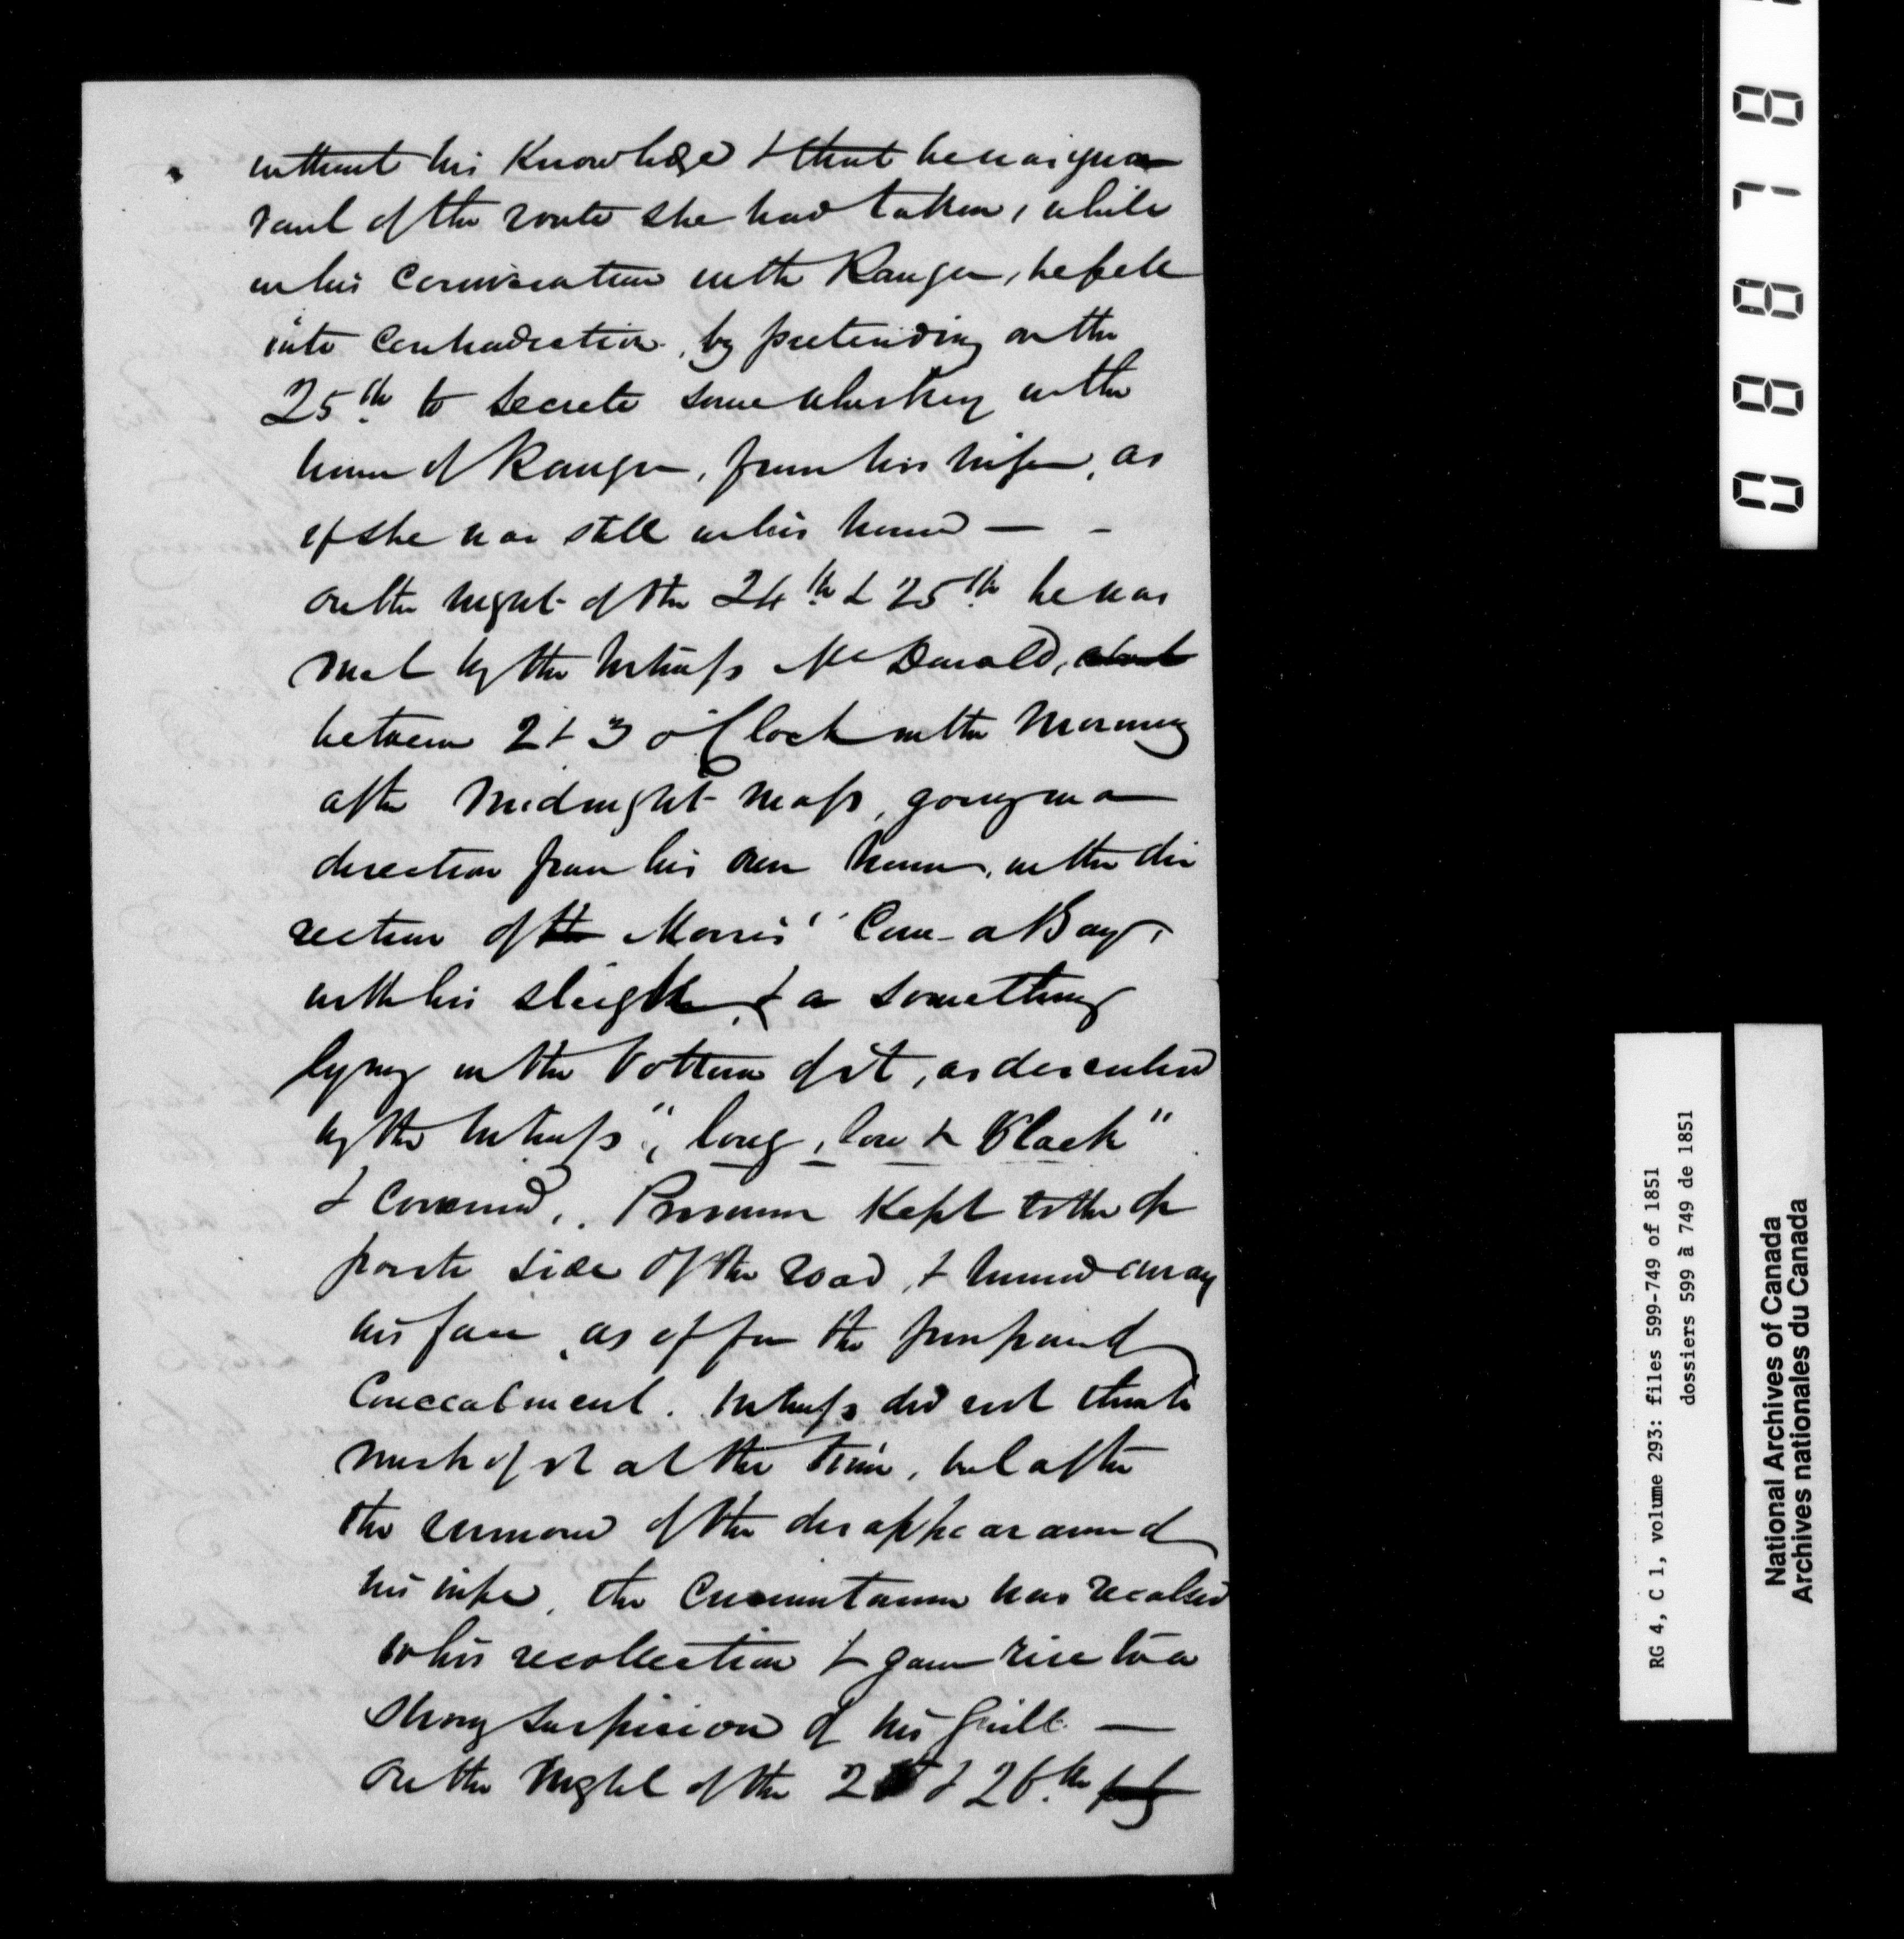 without his Knowledge & that he was igno
rant of the route she had taken, while
in his Conversation with Ranger, he fell
into Contradiction, by pretending on the
25th to secrete some whiskey in the
house of Ranger, from his wife, as
if she was still in his house — -
On the night of the 24th & 25th he was
met by the Witness McDonald, about
between 2 & 3 o'Clock in the Morning
after Midnight Mass, going in a
direction from his own house, in the di
rection of the Morris' Cove - a Bay,
with his sleigh & a something
lying in the bottom of it, as described
by the Witness "long, low & Black"
& Covered. Prisoner Kept to the op
posite side of the road, & turned away
his face, as if for the purpose of
Concealment. Witness did not think
much of it at the time, but after
the rumour of the disappearance of
his wife, the Circumstance was recalled
to his recollection & gave rise to a
strong suspicion of his guilt —
On the Night of the 25 & 26th
088788
RG 4, C 1, volume 293: files 599-749 of 1851
dossiers 599 à 749 de 1851
National Archives of Canada
Archives nationales du Canada